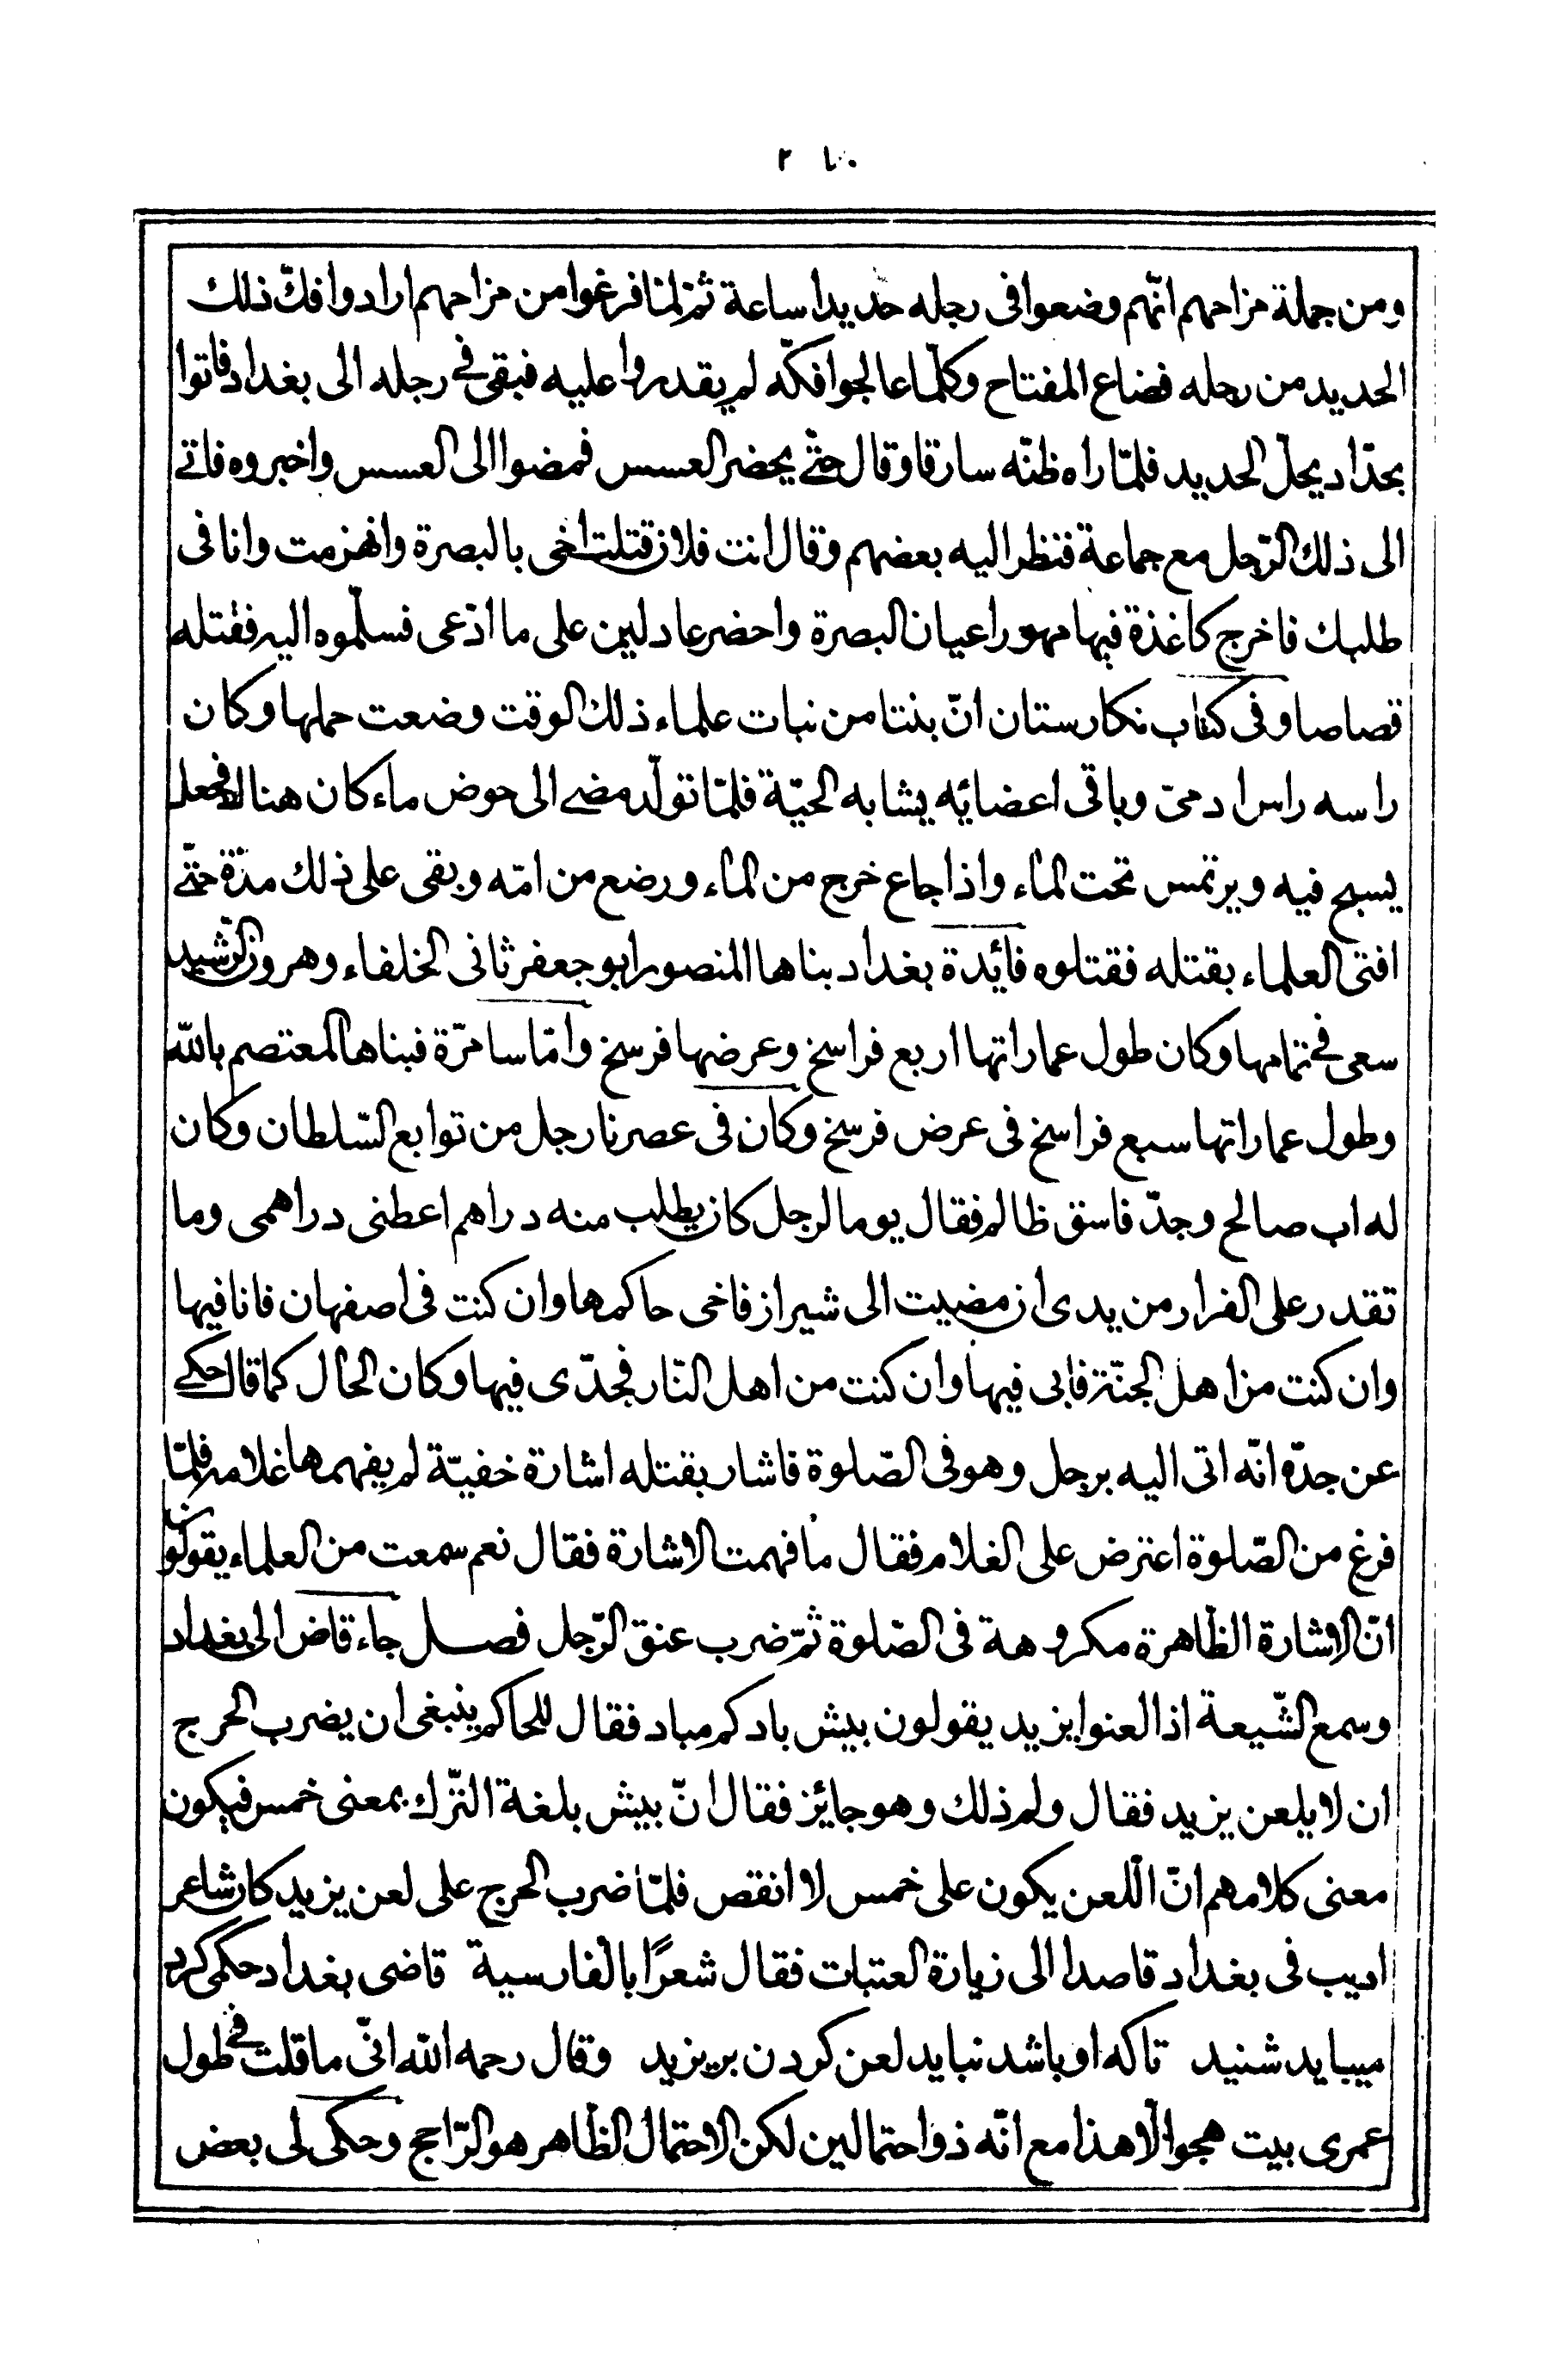 ومن جملة مزاحهم انّهم وضعوا فى رجله حديدا ساعة ثمّ لمّا فرغوا من مزاحهم ارادوا فكّ ذلك
الحديد من رجله فضاع المفتاح وكلّما عالجوا فكّه لم يقدروا عليه فبقى فى رجله الى بغداد فاتوا
بحدّاد يحلّ الحديد فلمّا راه ظنّه سارقا وقال حتّى يحضر العسس فمضوا الى العسس واخبروه فاتى
الى ذلك الرّجل مع جماعة فنظر اليه بعضهم وقال انت فلان قتلت اخى بالبصرة وانهزمت وانا فى
طلبك فاخرج كاغذة فيها مهور اعيان البصرة واحضر عادلين على ما ادّعى فسلّموه اليه فقتله
قصاصا وفى كتاب نكارستان انّ بنتا من نبات علماء ذلك الوقت وضعت حملها وكان
راسه راس ادمىّ وباقى اعضائه يشابه الحيّة فلمّا تولّد مضى الى حوض ماء كان هناك فجعل
يسبح فيه ويرتمس تحت الماء واذا جاع خرج من الماء ورضع من امّه وبقى على ذلك مدّة حتّى
افتى العلماء بقتله فقتلوه فائدة بغداد بناها المنصور ابو جعفر ثانى الخلفاء وهرون الرّشيد
سعى فى تمامها وكان طول عماراتها اربع فراسخ وعرضها فرسخ وامّا سامرّة فبناها المعتصم بالله
وطول عماراتها سبع فراسخ فى عرض فرسخ وكان فى عصرنا رجل من توابع السّلطان وكان
له اب صالح وجدّ فاسق ظالم فقال يوما لرجل كان يطلب منه دراهم اعطنى دراهمى وما
تقدر على الفرار من يدى ان مضيت الى شيراز فاخى حاكمها وان كنت فى اصفهان فانا فيها
وان كنت من اهل الجنّة فابى فيها وان كنت من اهل النّار فجدّى فيها وكان الحال كما قال حكى
عن جدّه انّه اتى اليه برجل وهو فى الصّلوة فاشار بقتله اشارة خفيّة لم يفهمها غلامه فلمّا
فرغ من الصّلوة اعترض على الغلام فقال ما فهمت الاشارة فقال نعم سمعت من العلماء يقولون
انّ الاشارة الظّاهرة مكروهة فى الصّلوة ثمّ ضرب عنق الرّجل فصل جاء قاض الى بغداد
وسمع الشّيعة اذا لعنوا يزيد يقولون بيش باد كم مباد فقال للحاكم ينبغى ان يضرب الحرج
ان لا يلعن يزيد فقال ولم ذلك وهو جائز فقال انّ بيش بلغة التّرك بمعنى خمس فيكون
معنى كلامهم انّ اللّعن يكون على خمس لا انقص فلمّا ضرب الحرج على لعن يزيد كان شاعر
اديب فى بغداد قاصدا الى زيارة العتبات فقال شعرًا بالفارسية قاضى بغداد حكمى كرد
ميبايد شنيد تا كه او باشد نبايد لعن كردن بر يزيد وقال رحمه الله انّى ما قلت فى طول
عمرى بيت هجو الّا هذا مع انّه ذو احتمالين لكن الاحتمال الظّاهر هو الرّاجح وحكى لى بعض